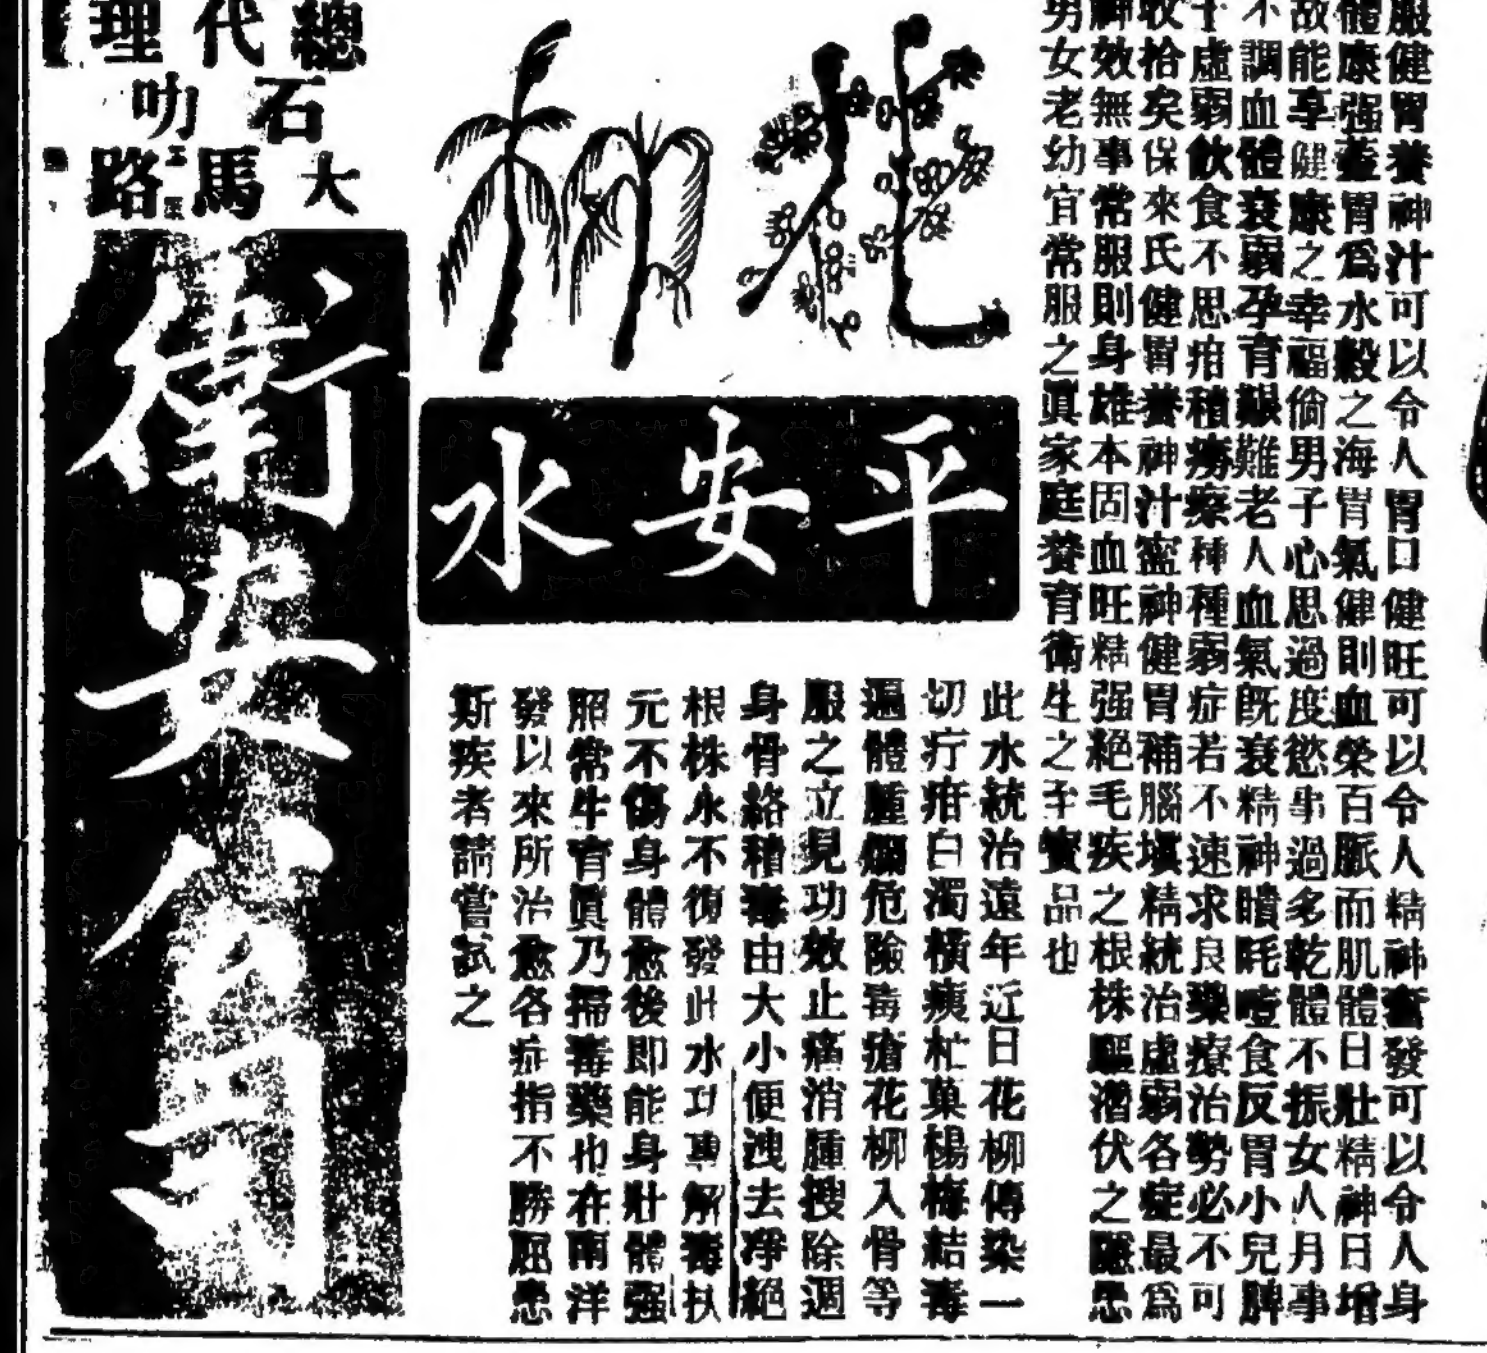 服健胃養神汁可以令人胃口健旺可以令人精神奮發可以令人身
體康强蓋胃爲水穀之海胃氣健則血榮百脈而肌體日壯精神日增
故能享健康之幸福倘男子心思過度慾事過多乾體不振女人月事
不調血體衰弱孕育艱難老人血氣既衰精神瞶眊噎食反胃小兒脾
虛弱飲食不思疳積癆瘵種種弱症若不速求良藥療治勢必不可
收拾矣保來氏健胃養神汁寧神健胃補腦塡精統治虛弱各症最爲
神效無事常服則身雄本固血旺精强絕毛疾之根株驅潛伏之隱患
男女老幼宜常服之眞家庭養育衛生之寶品也
花柳
平安水
此水統治遠年近日花柳傳染一
切疔疳白濁橫痰杧菓楊梅結毒
遍體腫爛危險毒瘡花柳入骨等
服之立見功效止痛消腫搜除週
身骨絡積毒由大小便洩去淨絕
根株永不復發此水功專解毒扶
元不傷身體愈後即能身壯體强
照常生育眞乃掃毒藥也在南洋
發以來所治愈各症指不勝屈患
斯疾者請嘗試之
總代理
石叻
大馬路
衛安公司